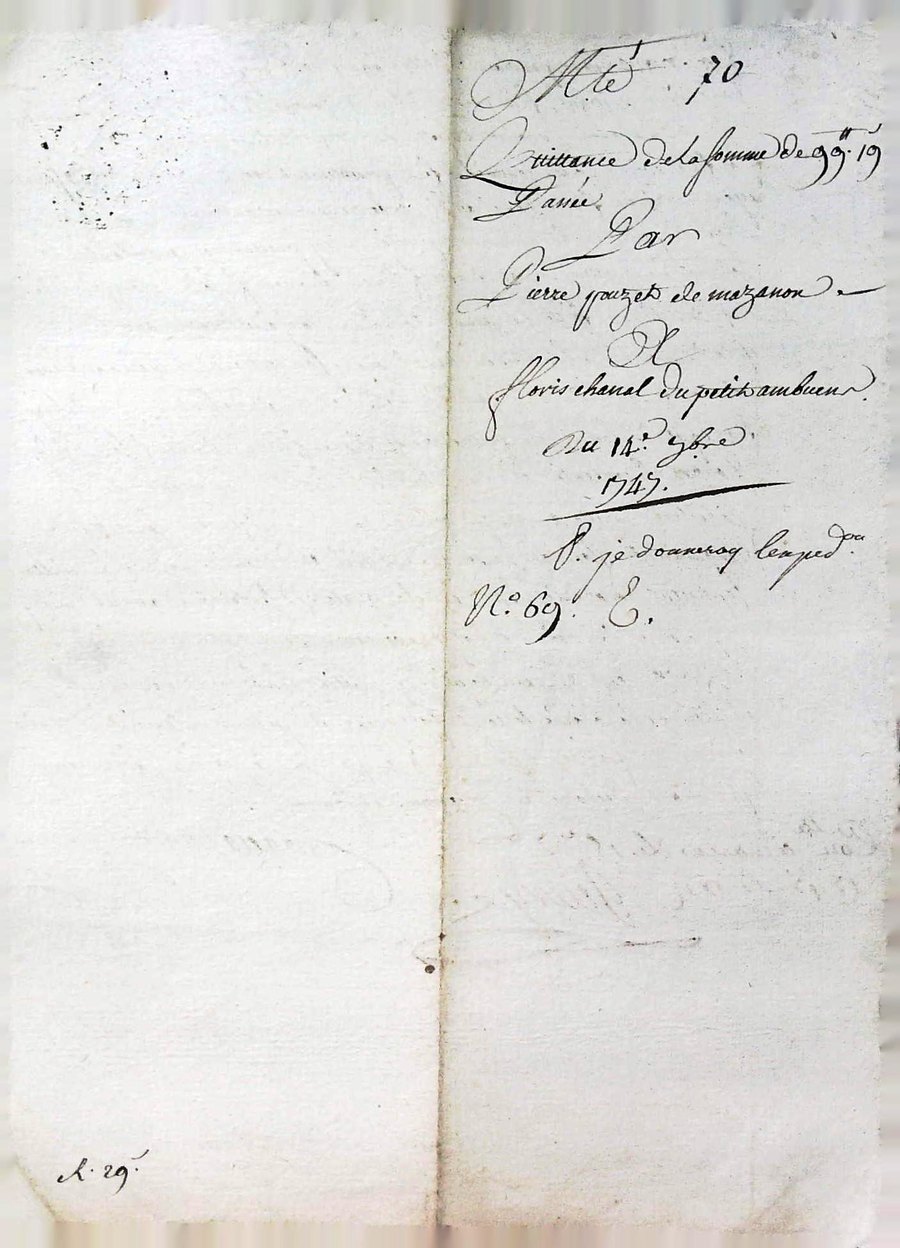 Mté 70
Quittance de la somme de 99ᵗᵗ. 19ˢ
Passée
Par
Pierre pouzet de mazanon
A
floris chanal du petit ambuens.
Du 14.ᵉ 9bre
1747.
P. je donneray l'exped.ᵒⁿ
N.º 69. E.
R. 29ˢ.